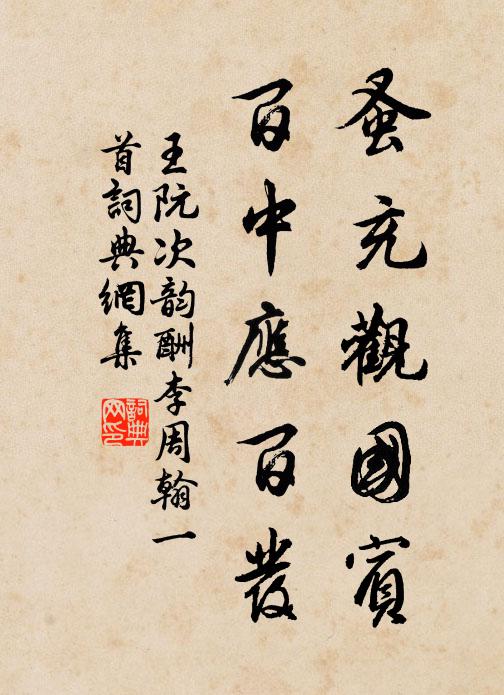 蚤充觀國賓
百中應百發
王阮次韵酬李周翰一
首詞典網集
詞典网印